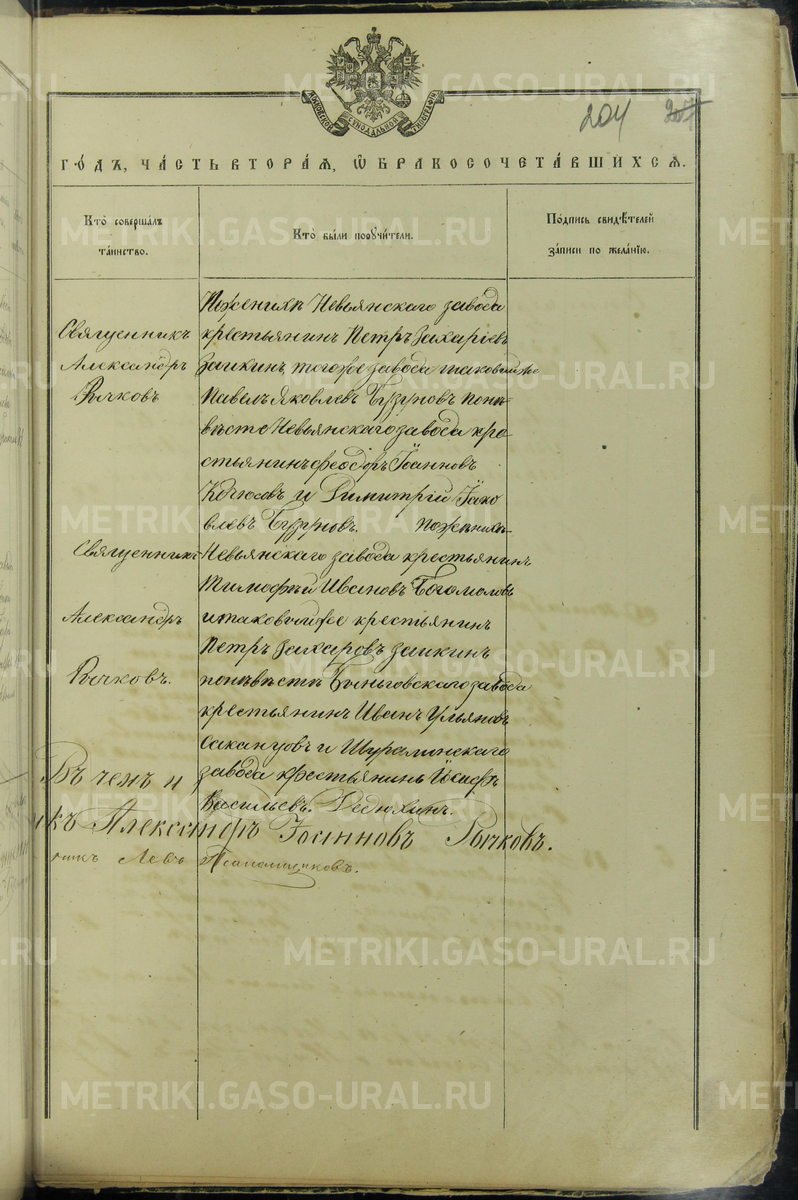 МОСКОВСКОЙ СѴНОДАЛЬНОЙ ТИПОГРАФІИ
204
ГО́ДЪ, ЧА́СТЬ ВТОРА́Ѧ, Ѽ БРАКОСОЧЕТА́ВШИХСѦ.
Кто̀ совершалъ
та́инство.
Кто̀ бы́ли порꙋчи́тели.
По́дпись свидѣ́телей
за́писи по жела́нїю.
Священникъ
Александръ
Рычковъ
Поженихѣ Невьянскаго завода
крестьянинъ Петръ Захаріевъ
Заикинъ, тогоже завода таковый же
Павелъ Яковлевъ Бузуновъ поне-
вѣсте Невьянскаго завода кре-
стьянинъ Феодоръ Іоанновъ
и Димитрій Іако
влевъ Бузуновъ. Поженихѣ
Священникъ
Александръ
Рычковъ.
Невьянскаго завода крестьянинъ
Тимофѣй Ивановъ Богомоловъ
итаковый же крестьянинъ
Петръ Захаровъ Заикинъ
поневѣстѣ Быньговскаго завода
крестьянинъ Иванъ Ульяновъ
и Шуралинскаго
завода крестьянинъ Іосифъ
Васильевъ Дедюхинъ.
Въ чемъ и
къ Александръ Іоанновъ Рычковъ.
Левъ Псаломщиковъ.
METRIKI.GASO-URAL.RU